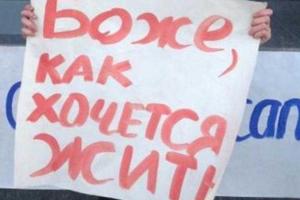 Боже,
как
хочется
жить
can